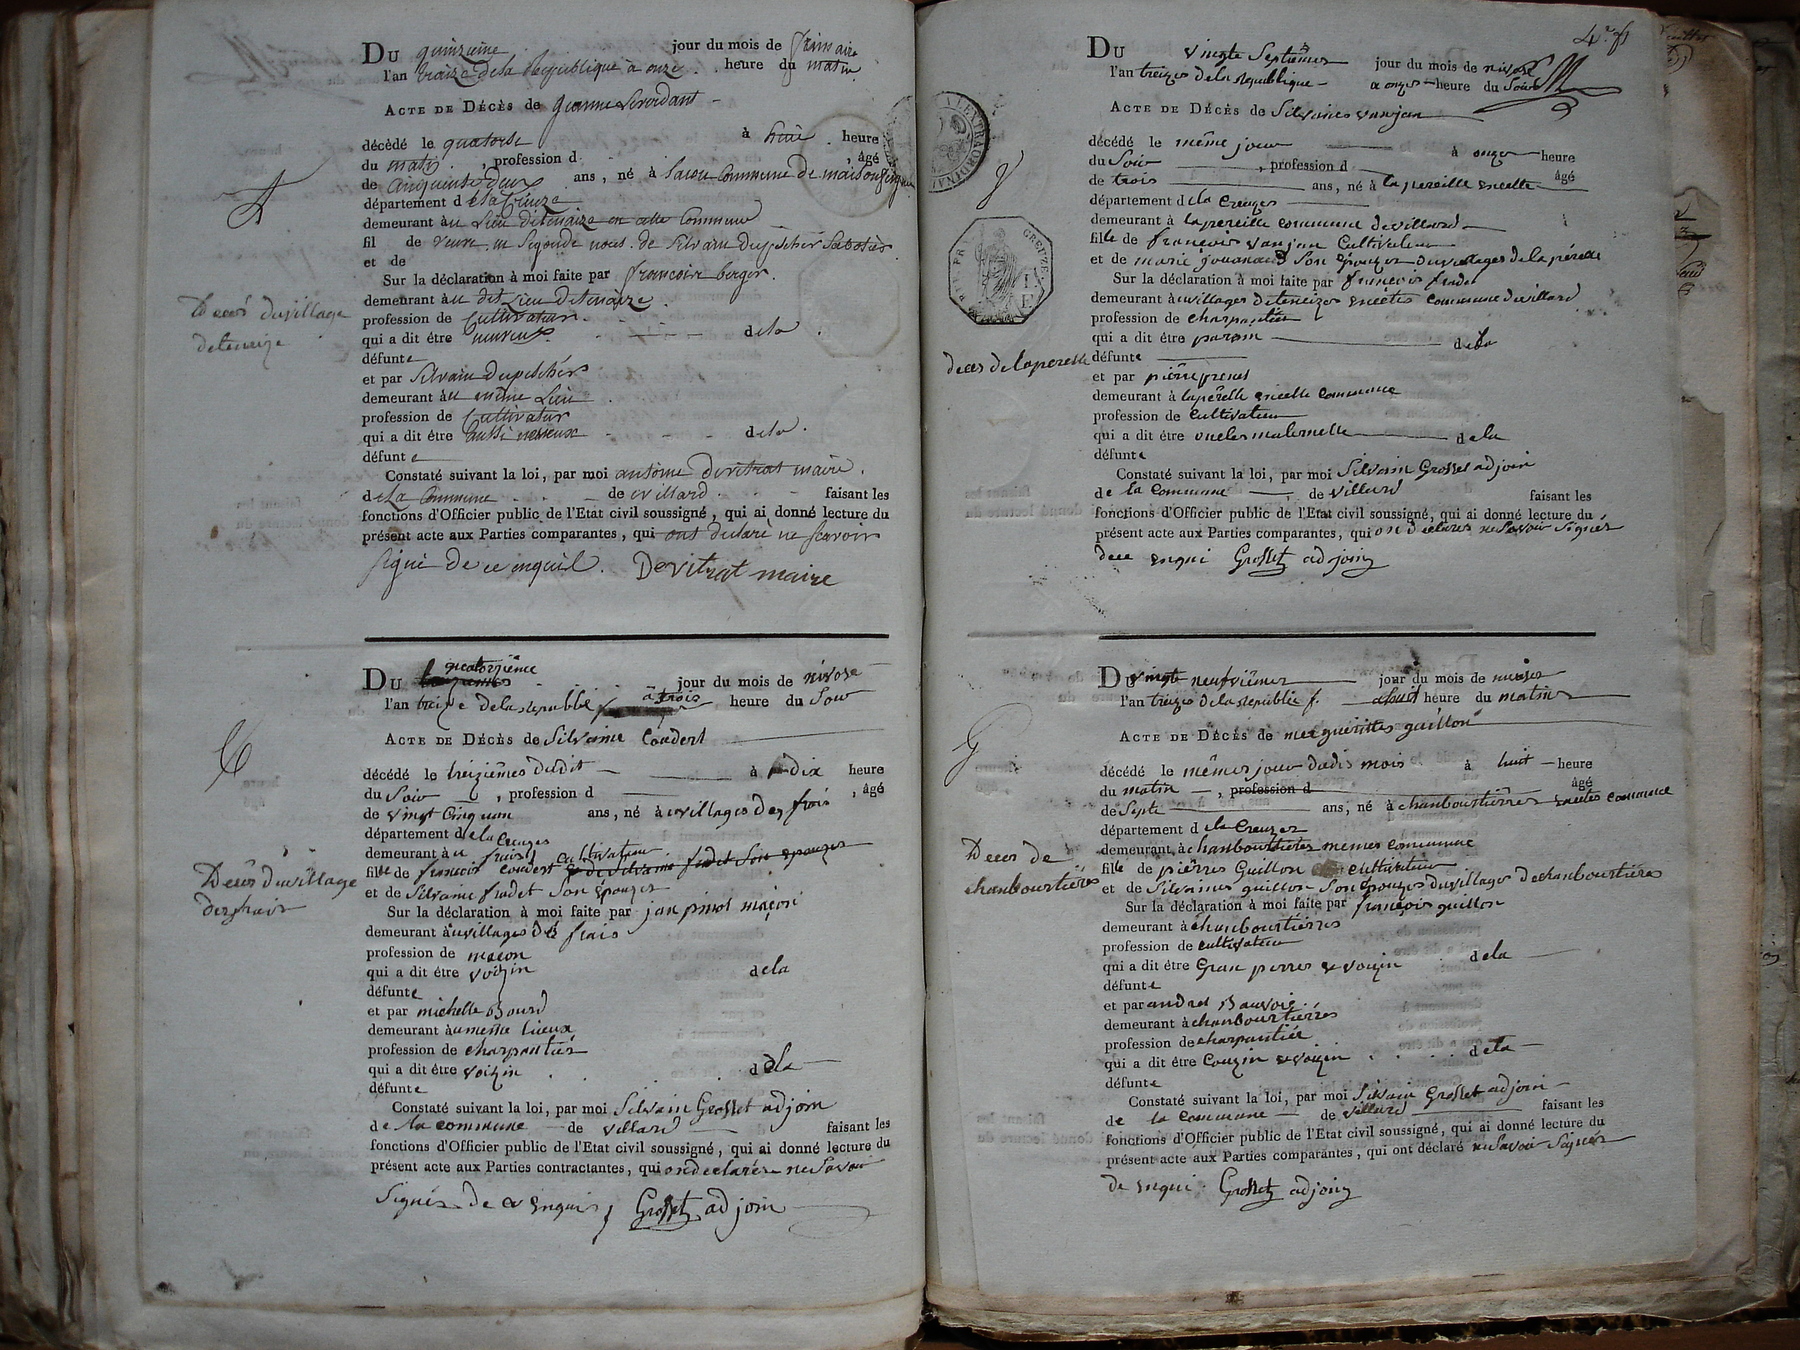 Du quinzieme jour du mois de frimaire
l'an traize de la Republique à onze heure du matin
Acte de Décès de
décédé le quatorse à huit heure
du matin, profession d , âgé
de cinquente deux ans, né à commune de maison
département de la Creuze
demeurant au Lieu de tenaize en cette Commune
fil de veuve en segonde nous de Silvain Dupeher Sabotier
et de
Sur la déclaration à moi faite par francoir berger
demeurant au dit Lieu de tenaize
profession de Cultivatur
qui a dit être de la
défunte
et par Silvain
demeurant au même Lieu
profession de Cultivatur
qui a dit être aussi de la
défunte
Constaté suivant la loi, par moi antoine Devitrat maire
de La Commune de villard faisant les
fonctions d'Officier public de l'Etat civil soussigné, qui ai donné lecture du
présent acte aux Parties comparantes, qui ont declaré ne scavoir
signé De ce enquil. Devitrat maire
A
Decés du village
de tenaize
Du quatorzième jour du mois de nivose
l'an treize de la republi à trois heure du Soir
Acte de Décès de Silvaine Coudert
décédé le treizièmes dudit à dix heure
du Soir, profession d , âgé
de vingt Cinq ans, né à villages des frais
département de la Creuzes
demeurant à frais
fille de francois Coudert Cultivateur
et de Silvaine fradet Son Épouzes
Sur la déclaration à moi faite par jan pinot maçon
demeurant au villages des frais
profession de maçon
qui a dit être voizin de la
défunte
et par michelle Bourd
demeurant au mesme Lieux
profession de charpantier
qui a dit être voizin de la
défunte
Constaté suivant la loi, par moi Silvain Grosset adjoin
de la commune de villard faisant les
fonctions d'Officier public de l'Etat civil soussigné, qui ai donné lecture du
présent acte aux Parties contractantes, qui on declarés ne Savoir
Signés de ce enquis, Grosset adjoin
Decés du village
des frais
4e f
Du vingte Septiemes jour du mois de nivose
l'an treizes de la republique à onzes heure du Soir
Acte de Décès de Silvaines vanjan
décédé le même jour à onzes heure
du Soir, profession d âgé
de trois ans, né à la pereille encelle
département de la Creuzes
demeurant à la pereille commune de villard
fille de françois vanjan Cultivateur
et de marie jouanaud Son Épouzes du villages de la pérelle
Sur la déclaration à moi faite par francois fradet
demeurant au villages de teneizes commune de villard
profession de charpantier
qui a dit être parain de la
défunte
et par pierre
demeurant à la pérelle encelle commune
profession de cultivateur
qui a dit être oncles maternelle de la
défunte
Constaté suivant la loi, par moi Silvain Grosset adjoin
de la commune de villard faisant les
fonctions d'Officier public de l'Etat civil soussigné, qui ai donné lecture du
présent acte aux Parties comparantes, qui on declares ne Savoir Signés
dece enqui Grosset adjoin
deces de la perelle
Du vingt neufviemes jour du mois de nivoses
l'an treizes de la republic f. à huit heure du matines
Acte de Décès de marguerittes guillon
décédé le mêmes jour dudis mois à huit heure
du matin, profession d âgé
de Septe ans, né à chanbourtierres commune
département de la Creuzes
demeurant à chanbourtieres memes commune
fille de pierres Guillon cultivateur
et de Silvaines guillon Son Épouzes du villages de chanbourtieres
Sur la déclaration à moi faite par françois guillon
demeurant à chanbourtierres
profession de cultivateur
qui a dit être Gran perres et vouzin de la
défunte
et par andres Bauvoie
demeurant à chanbourtierres
profession de charpantier
qui a dit être Couzin et vouzin de la
défunte
Constaté suivant la loi, par moi Silvain Grosset adjoin
de la commune de villard faisant les
fonctions d'Officier public de l'Etat civil soussigné, qui ai donné lecture du
présent acte aux Parties comparantes, qui ont déclaré ne Savoir Signér
de enqui Grosset adjoin
G
Deces de
chanbourtieres
CREUZE